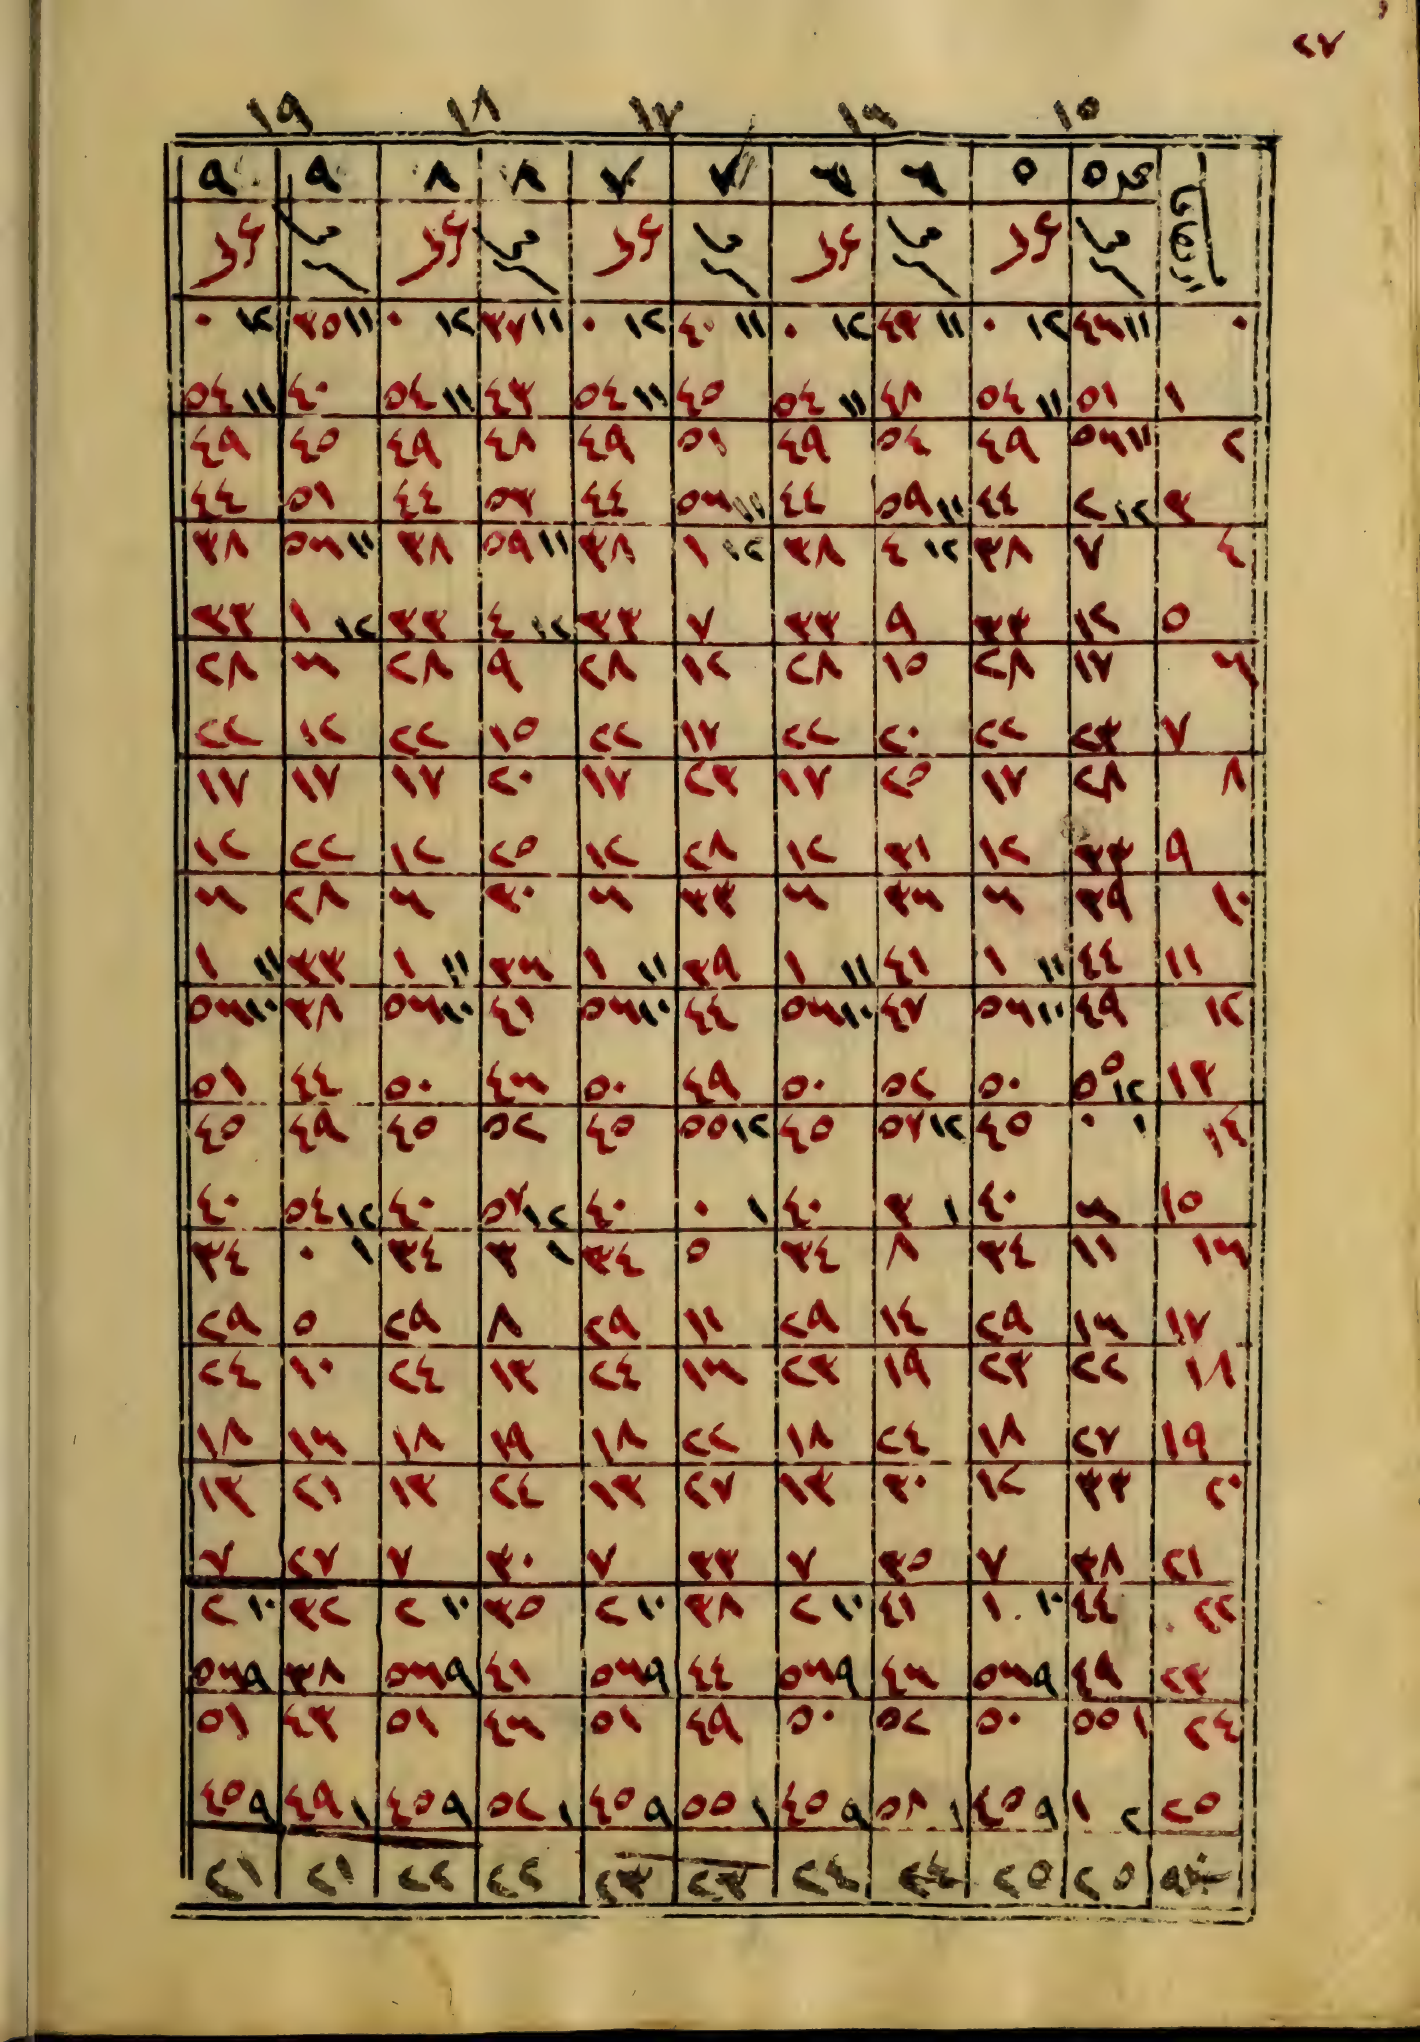 ٢٧
١٥ ١٦ ١٧ ١٨ ١٩
٥ ٥ ٦ ٦ ٧ ٧ ٨ ٨ ٩ ٩
٠ ١١ ٤٦ ١٢ ٠ ١١ ٤٣ ١٢ ٠ ١١ ٤٠ ١٢ ٠ ١١ ٣٧ ١٢ ٠ ١١ ٣٥ ١٢ ٠
١ ٥١ ١١ ٥٤ ٤٨ ١١ ٥٤ ٤٥ ١١ ٥٤ ٤٣ ١١ ٥٤ ٤٠ ١١ ٥٤
٢ ١١ ٥٦ ٤٩ ٥٤ ٤٩ ٥١ ٤٩ ٤٨ ٤٩ ٤٥ ٤٩
٣ ١٢ ٢ ٤٤ ١١ ٥٩ ٤٤ ١١ ٥٦ ٤٤ ٥٣ ٤٤ ٥١ ٤٤
٤ ٧ ٣٨ ١٢ ٤ ٣٨ ١٢ ١ ٣٨ ١١ ٥٩ ٣٨ ١١ ٥٦ ٣٨
٥ ١٢ ٣٣ ٩ ٣٣ ٧ ٣٣ ١٢ ٤ ٣٣ ١٢ ١ ٣٣
٦ ١٧ ٢٨ ١٥ ٢٨ ١٢ ٢٨ ٩ ٢٨ ٦ ٢٨
٧ ٢٣ ٢٢ ٢٠ ٢٢ ١٧ ٢٢ ١٥ ٢٢ ١٢ ٢٢
٨ ٢٨ ١٧ ٢٥ ١٧ ٢٣ ١٧ ٢٠ ١٧ ١٧ ١٧
٩ ٣٣ ١٢ ٣١ ١٢ ٢٨ ١٢ ٢٥ ١٢ ٢٢ ١٢
١٠ ٣٩ ٦ ٣٦ ٦ ٣٣ ٦ ٣٠ ٦ ٢٨ ٦
١١ ٤٤ ١١ ١ ٤١ ١١ ١ ٣٩ ١١ ١ ٣٦ ١١ ١ ٣٣ ١١ ١
١٢ ٤٩ ١٠ ٥٦ ٤٧ ١٠ ٥٦ ٤٤ ١٠ ٥٦ ٤١ ١٠ ٥٦ ٣٨ ١٠ ٥٦
١٣ ١٢ ٥٥ ٥٠ ٥٢ ٥٠ ٤٩ ٥٠ ٤٦ ٥٠ ٤٤ ٥١
١٤ ١ ٠ ٤٥ ١٢ ٥٧ ٤٥ ١٢ ٥٥ ٤٥ ٥٢ ٤٥ ٤٩ ٤٥
١٥ ٦ ٤٠ ١ ٣ ٤٠ ١ ٠ ٤٠ ١٢ ٥٧ ٤٠ ١٢ ٥٤ ٤٠
١٦ ١١ ٣٤ ٨ ٣٤ ٥ ٣٤ ١ ٣ ٣٤ ١ ٠ ٣٤
١٧ ١٦ ٢٩ ١٤ ٢٩ ١١ ٢٩ ٨ ٢٩ ٥ ٢٩
١٨ ٢٢ ٢٣ ١٩ ٢٣ ١٦ ٢٤ ١٣ ٢٤ ١٠ ٢٤
١٩ ٢٧ ١٨ ٢٤ ١٨ ٢٢ ١٨ ١٩ ١٨ ١٦ ١٨
٢٠ ٣٣ ١٢ ٣٠ ١٣ ٢٧ ١٣ ٢٤ ١٣ ٢١ ١٣
٢١ ٣٨ ٧ ٣٥ ٧ ٣٣ ٧ ٣٠ ٧ ٢٧ ٧
٢٢ ٤٤ ١٠ ١ ٤١ ١٠ ٢ ٣٨ ١٠ ٢ ٣٥ ١٠ ٢ ٣٢ ١٠ ٢
٢٣ ٤٩ ٩ ٥٦ ٤٦ ٩ ٥٦ ٤٤ ٩ ٥٦ ٤١ ٩ ٥٦ ٣٨ ٩ ٥٦
٢٤ ١ ٥٥ ٥٠ ٥٢ ٥٠ ٤٩ ٥١ ٤٦ ٥١ ٤٣ ٥١
٢٥ ٢ ١ ٩ ٤٥ ١ ٥٨ ٩ ٤٥ ١ ٥٥ ٩ ٤٥ ١ ٥٢ ٩ ٤٥ ١ ٤٩ ٩ ٤٥
٢٥ ٢٥ ٢٤ ٢٤ ٢٣ ٢٣ ٢٢ ٢٢ ٢١ ٢١